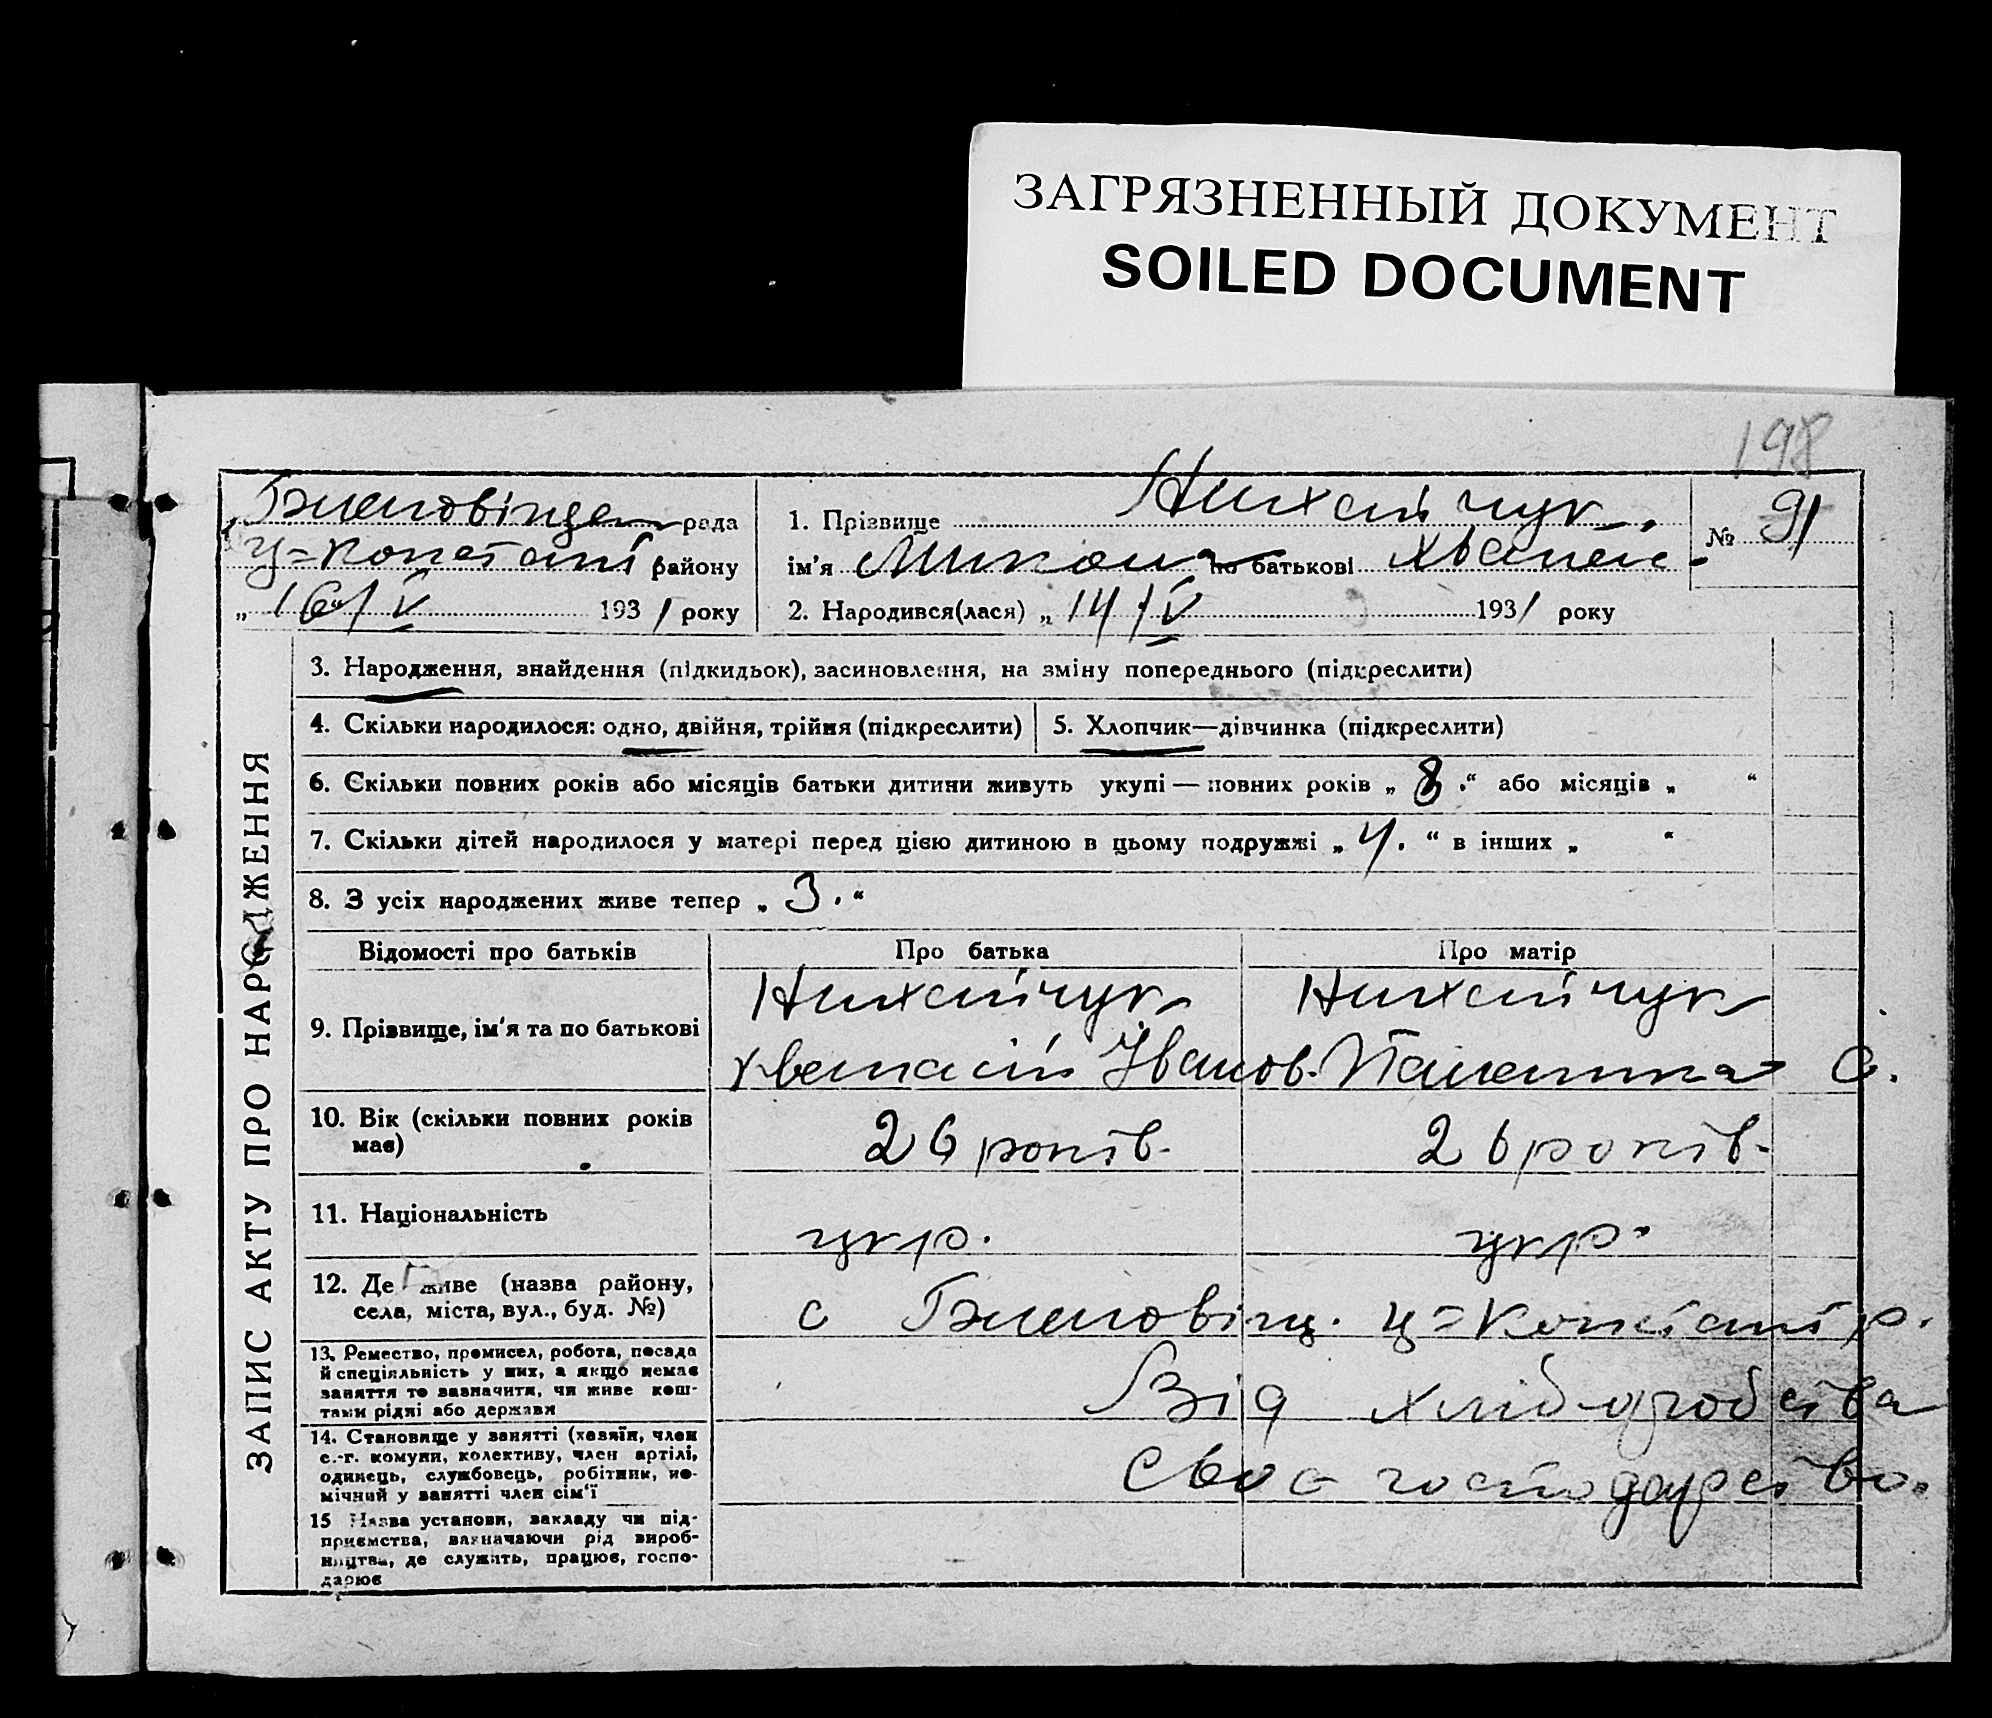 ЗАГРЯЗНЕННЫЙ ДОКУМЕНТ
SOILED DOCUMENT
198
рада
району
„ 16/V 1931 року
1. Прізвище Нихайчук.
ім'я Микола по батькові
2. Народився(лася) „ 14/V 1931 року
№ 91
ЗАПИС АКТУ ПРО НАРОДЖЕННЯ
3. Народження, знайдення (підкидьок), засиновлення, на зміну попереднього (підкреслити)
4. Скільки народилося: одно, двійня, трійня (підкреслити)
5. Хлопчик—дівчинка (підкреслити)
6. Скільки повних років або місяців батьки дитини живуть укупі — повних років „ 8. “ або місяців „ “
7. Скільки дітей народилося у матері перед цією дитиною в цьому подружжі „ 4. “ в інших „ “
8. З усіх народжених живе тепер „ 3. “
Відомості про батьків
Про батька
Про матір
9. Прізвище, ім'я та по батькові
Нихайчук
Іванов.
Нихайчук
С.
10. Вік (скільки повних років
має)
26 років.
26 років.
11. Національність
укр.
укр.
12. Де живе (назва району,
села, міста, вул., буд. №)
с
р.
13. Ремество, промисел, робота, посада
й спеціяльність у них, а якщо немає
заняття то зазначити, чи живе кош-
тами рідні або держави
Від хліборобства
14. Становище у занятті (хазяїн, член
с.-г. комуни, колективу, член артілі,
одинець, службовець, робітник, по-
мічний у занятті член сім'ї
Своє господарство.
15 Назва установи, закладу чи під-
приємства, зазначаючи рід вироб-
ництва, де служить, працює, госпо-
дарює